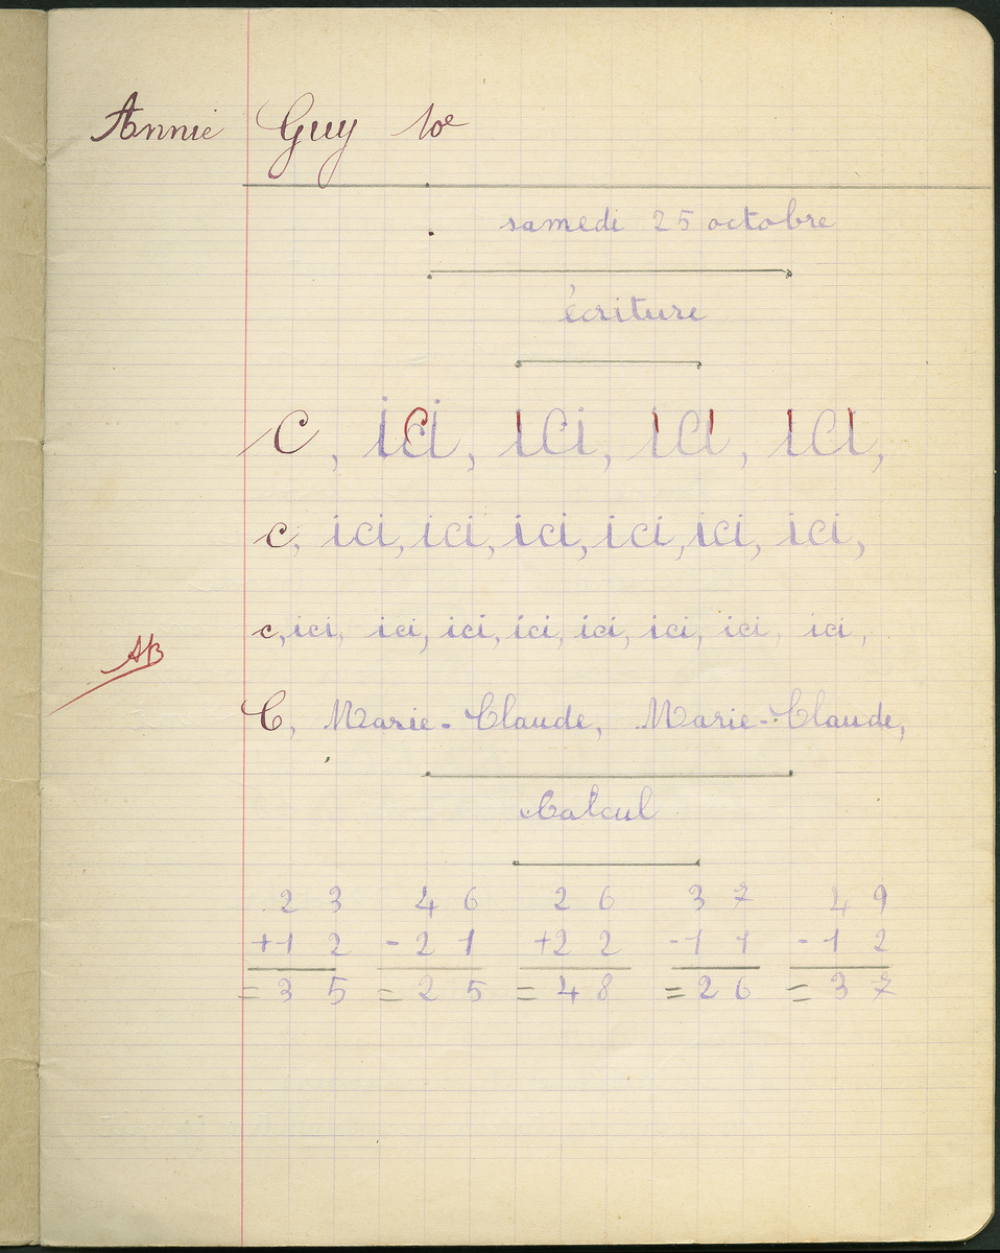 Annie Guy 10e
samedi 25 octobre
écriture
c, ici, ici, ici, ici,
c, ici, ici, ici, ici, ici, ici,
c, ici, ici, ici, ici, ici, ici, ici, ici,
AB
C, Marie-Claude, Marie-Claude,
Calcul
23 46 26 37 49
+12 -21 +22 -11 -12
=35 =25 =48 =26 =37